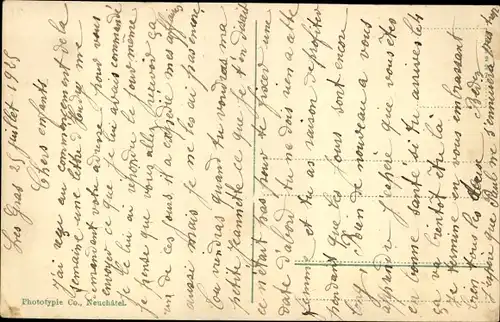 Les Gras 25 juillet 1925
Chers enfants
J'ai reçu au commencement de la
semaine une lettre me
demandant votre adresse pour vous
envoyer ce que je lui avais commandé
je le lui ai répondu le jour même
je pense que vous allez recevoir ça
un de ces jours il a expédié mes affaires
aussi mais je ne les ai pas encore
tu viendras quand tu voudras ma
petite Jeannette ce que je t'en disait
ce n'était pas pour te fixer une
date d'abord tu ne dois rien a cette
femme et tu as raison de profiter
pendant que les jours sont encore
long, Rien de nouveau a vous
apprendre j'espère que vous êtes
en bonne santé si tu arrives les
ça va bientôt être là
je termine en vous embrassant
bien tous les
que s'ennuiera pas trop
Phototypie Co., Neuchâtel.